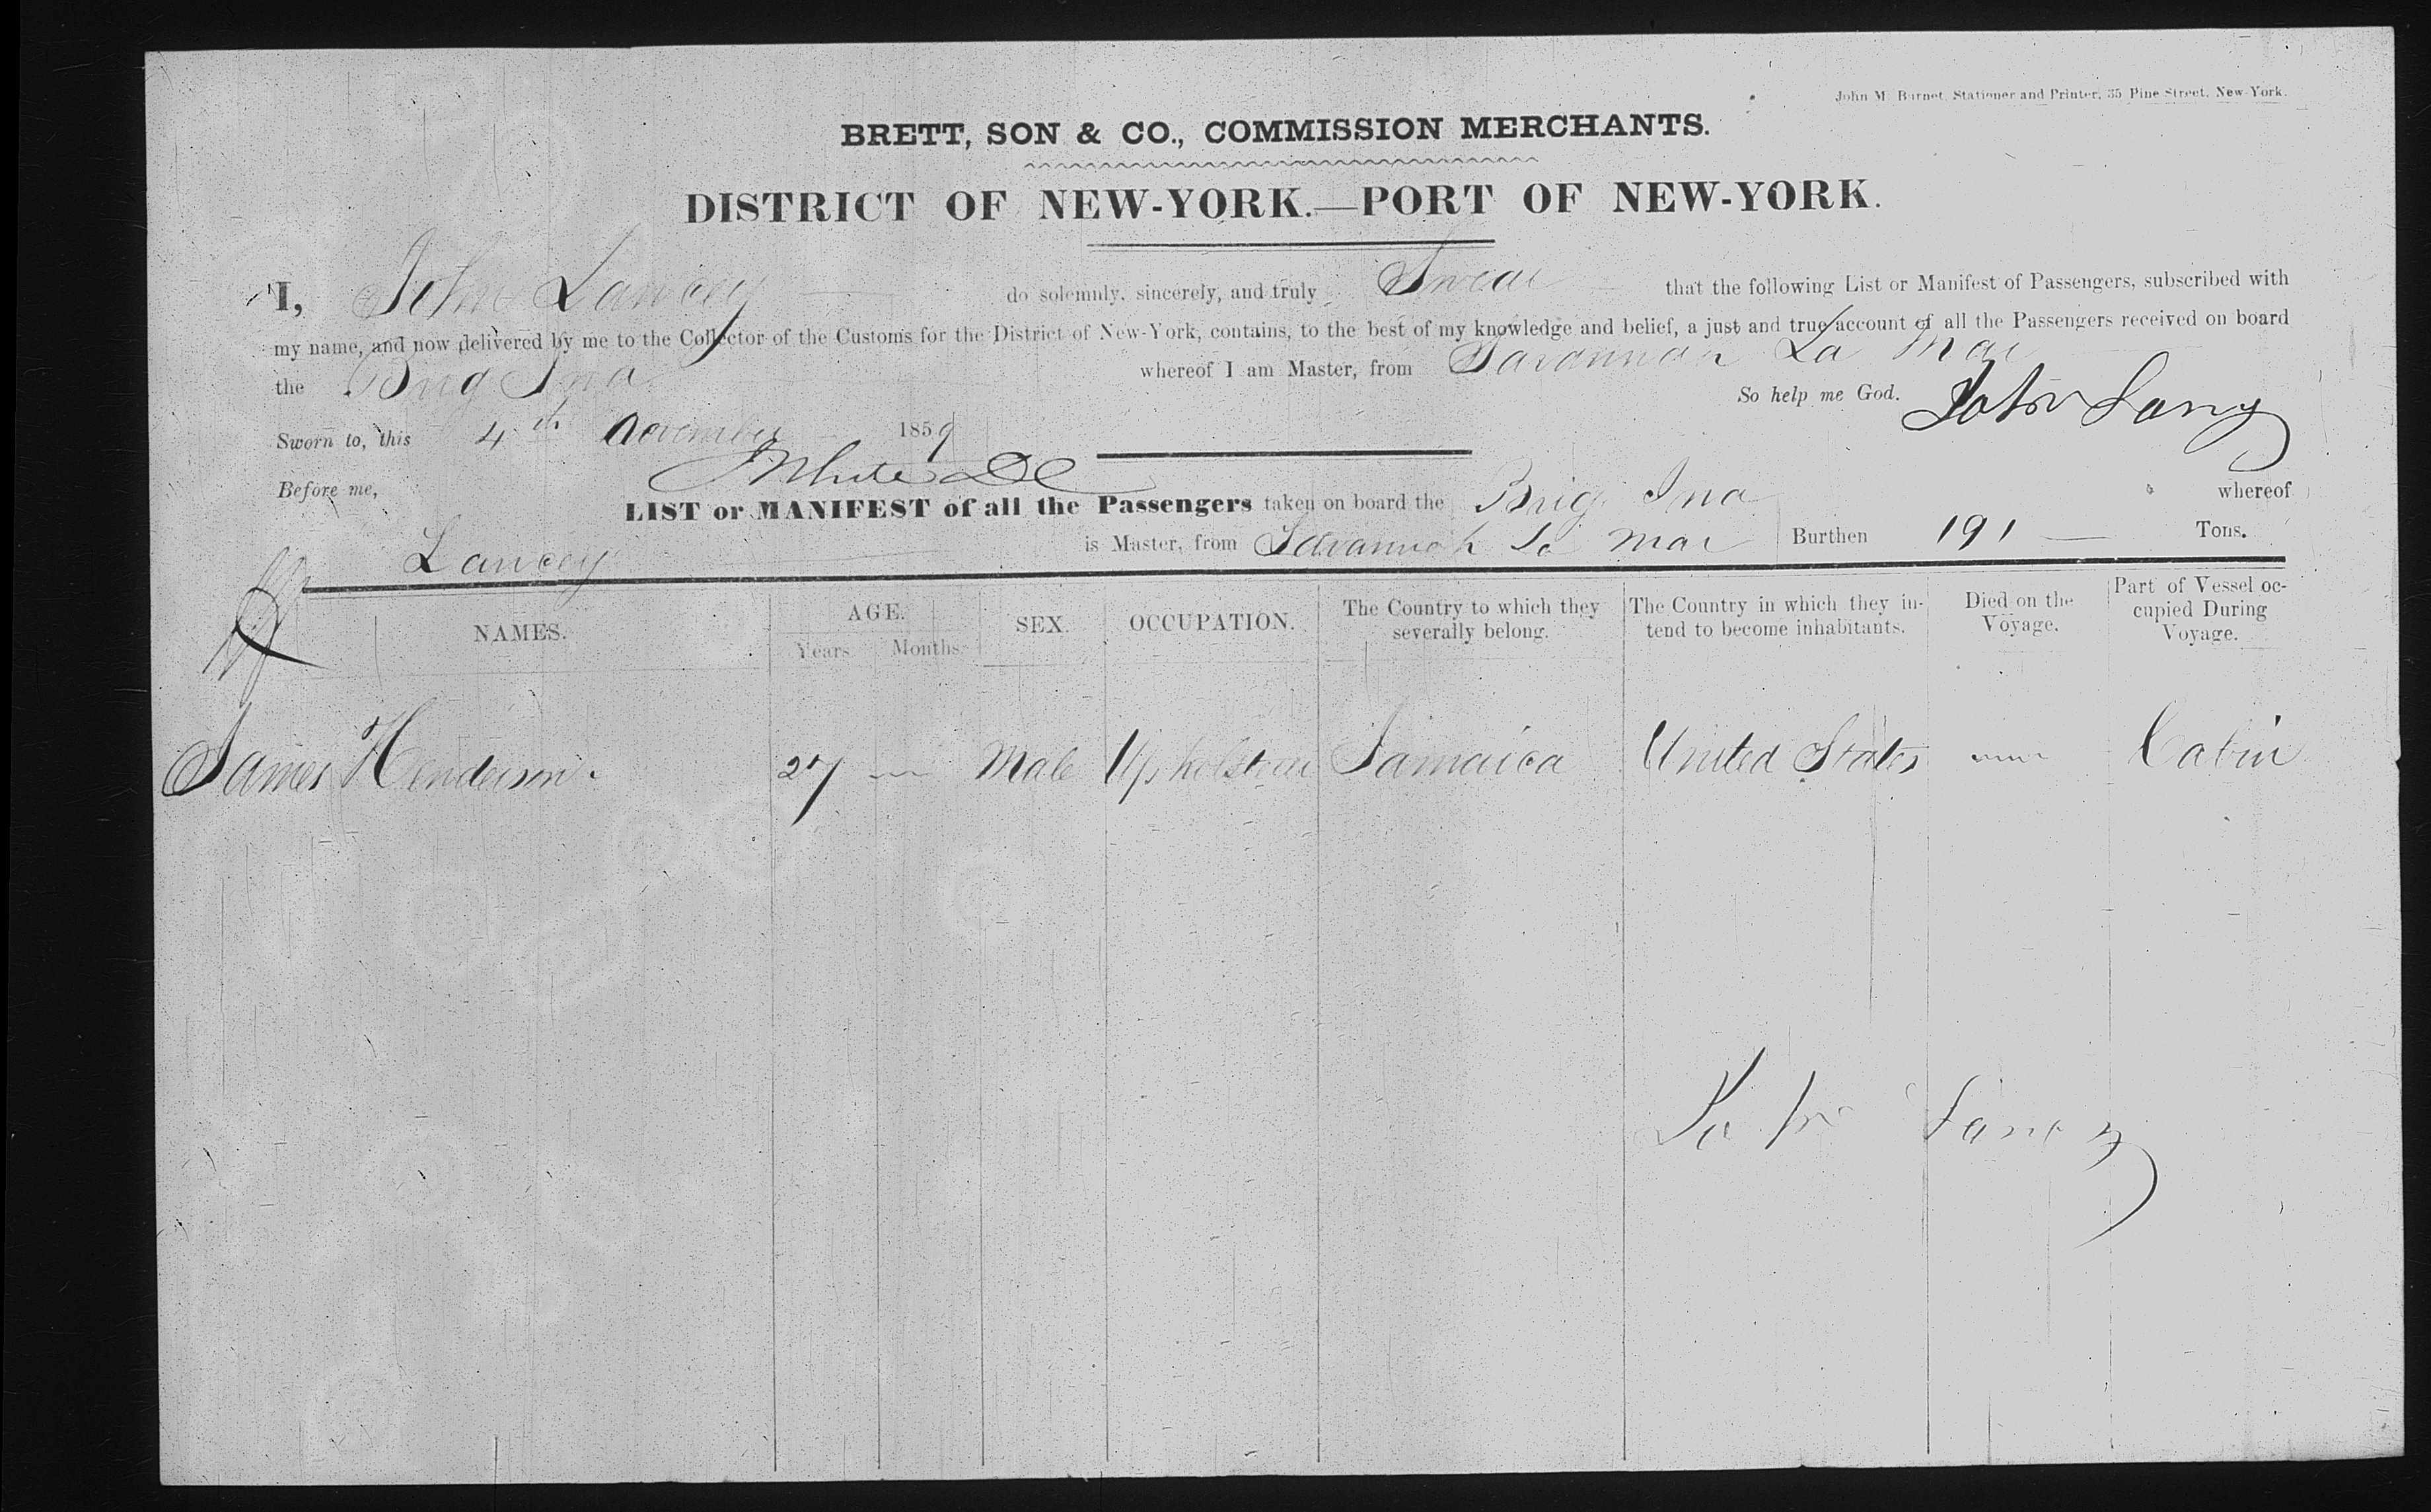 John M. Burnet, Stationer and Printer, 35 Pine Street, New-York.
BRETT, SON & CO., COMMISSION MERCHANTS.
DISTRICT OF NEW-YORK.—PORT OF NEW-YORK.
I, John Lancey do solemnly, sincerely, and truly Swear that the following List or Manifest of Passengers, subscribed with
my name, and now delivered by me to the Collector of the Customs for the District of New-York, contains, to the best of my knowledge and belief, a just and true account of all the Passengers received on board
the Brig Ina whereof I am Master, from Savannah La Mar
So help me God. John Lancy
Sworn to, this 4th November 1859
Before me, White
LIST or MANIFEST of all the Passengers taken on board the Brig Ina whereof
Lancey is Master, from Savannah La Mar Burthen 191 Tons.
NAMES. AGE. Years Months. SEX. OCCUPATION. The Country to which they severally belong. The Country in which they intend to become inhabitants. Died on the Voyage. Part of Vessel occupied During Voyage.
James Henderson. 27 Male Upholsterer Jamaica United States Cabin
John Lancy